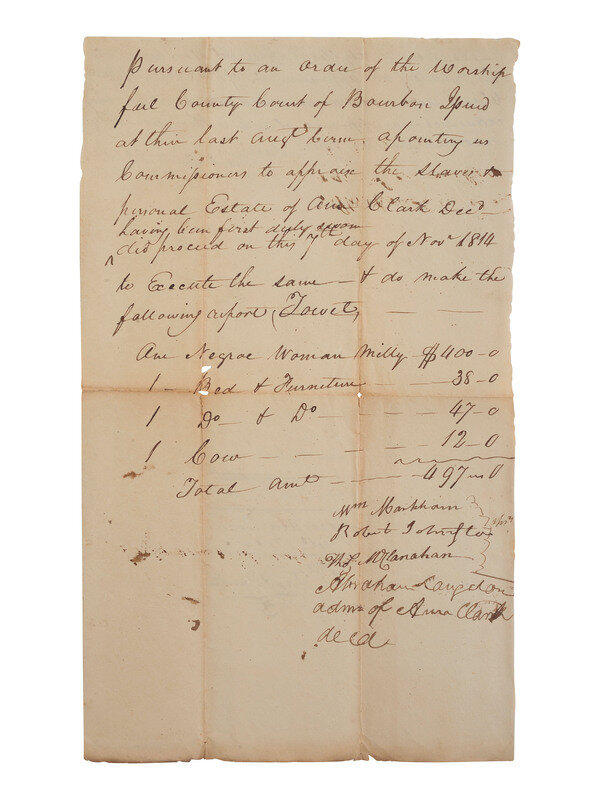 Pursuant to an order of the Worship
ful County Court of Bourbon Issued
at their last Augt. term apointing us
Commissioners to appraise the slaves &
personal Estate of Ann Clark Decd.
having been first duly sworn
^ did proceed on this 7th day of Novr. 1814
to Execute the same — & do make the
following report (Towit,
One Negroe Woman Milly $400-0
1 — Bed & Furniture — — 38-0
1 Do — & Do — — — 47-0
1 Cow — — — — 12-0
Total Amt — — — 497 0
Wm Markham
Robert Johnston
McClanahan
Abraham Langdon
adm of Anna Clark
decd